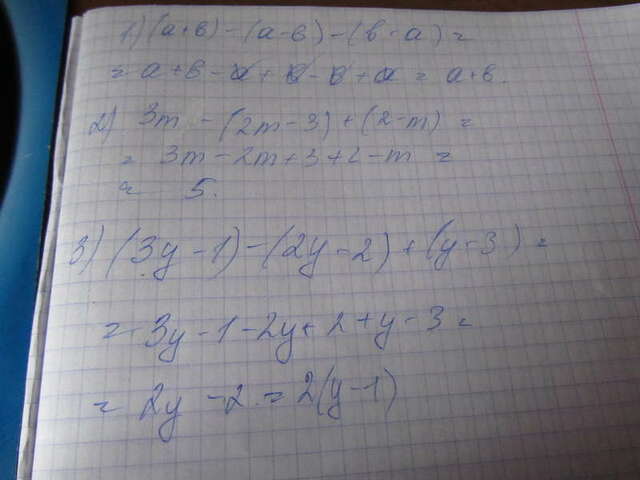 1) (a+b) - (a-b) - (b-a) =
= a+b-a+b-b+a = a+b.
2) 3m - (2m-3) + (2-m) =
= 3m-2m+3+2-m =
= 5.
3) (3y-1) - (2y-2) + (y-3) =
= 3y-1-2y+2+y-3 =
= 2y-2 = 2(y-1)